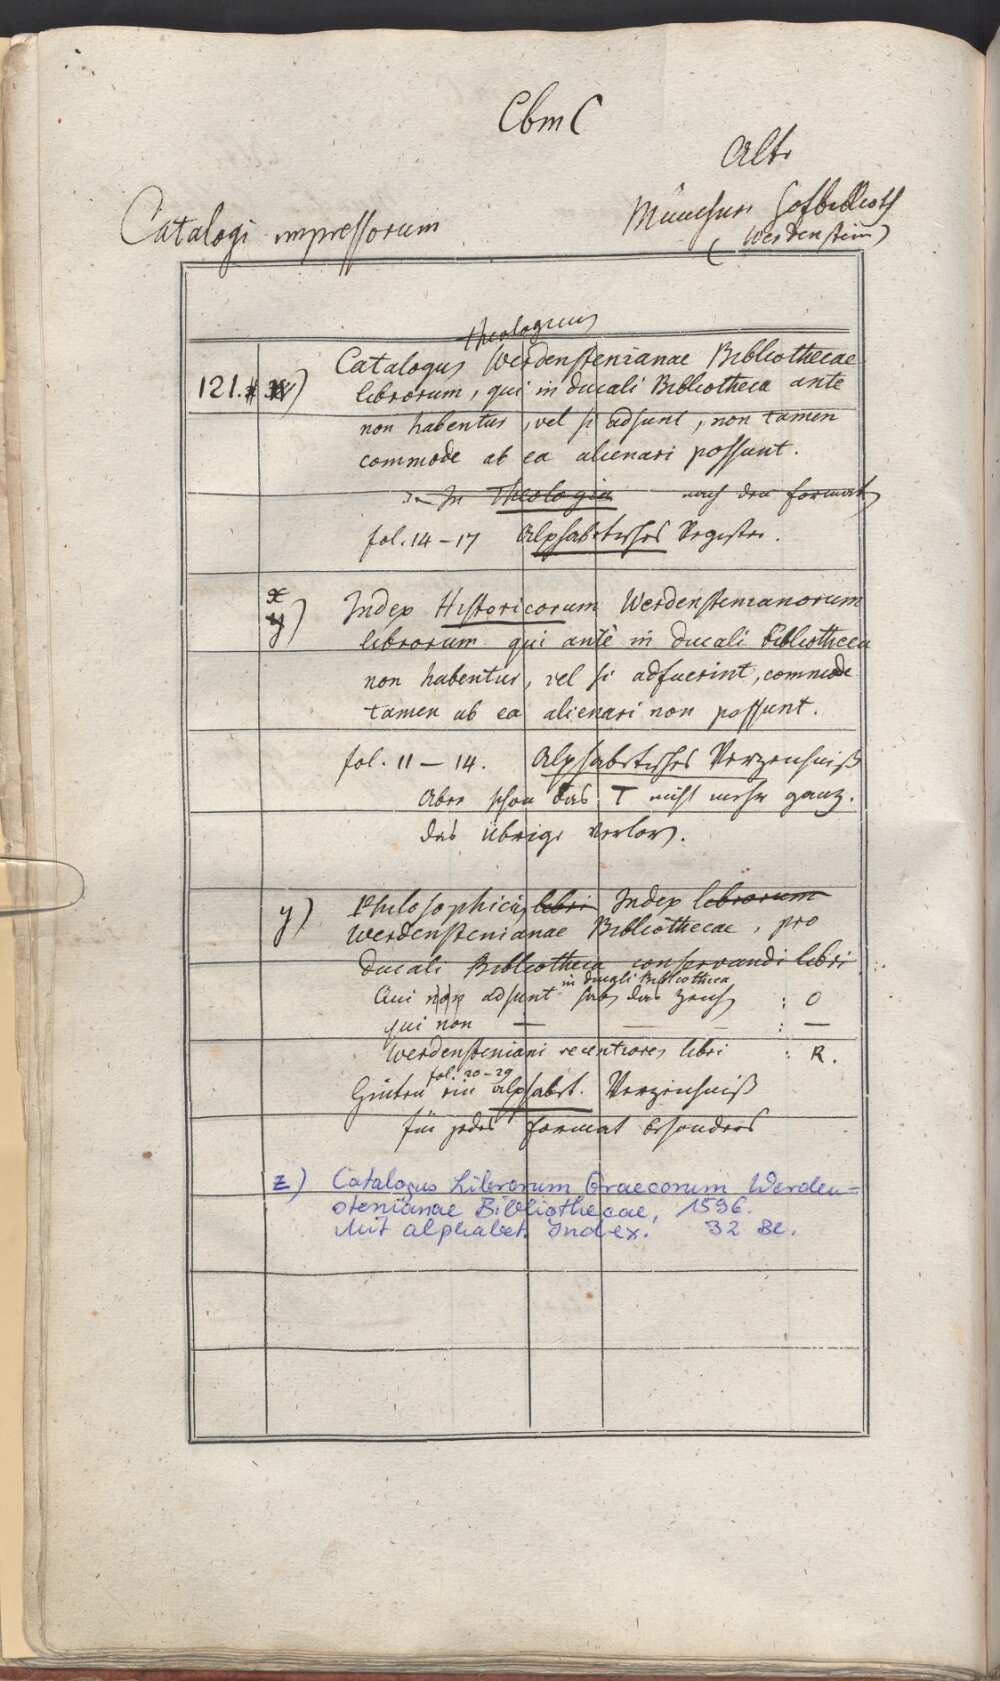 Cbm C
Alte
Catalogi impressorum
Münchner Hofbiblioth
(Werdenstein)
theologicus
Catalogus Werdenstenianae Bibliothecae
121. w) librorum, qui in ducali Bibliotheca ante
non habentur, vel si adsunt, non tamen
commode ab ea alienari possunt.
In Theologia nach den Format
fol. 14-17 Alphabetisches Register.
x
y) Index Historicorum Werdenstenianorum
librorum qui antè in ducali bibliotheca
non habentur, vel si adfuerint, commode
tamen ab ea alienari non possunt.
fol. 11 - 14. Alphabetisches Verzeichniß
Aber schon das T nicht mehr ganz.
das übrige verlor.
y) Philosophicus libri Index librorum
Werdenstenianae Bibliothecae, pro
ducali Bibliotheca conservandi libri
in ducali Bibliotheca
Qui non adsunt hab das Zeich : O
qui non — — — : —
Werdensteniani recentiores libri : R.
fol. 20-29
Hinten ein alphabet. Verzeichniß
für jedes Format besonders
z) Catalogus Librorum Graecorum Werden=
stenianae Bibliothecae, 1596.
Mit alphabet. Index. 32 Bl.